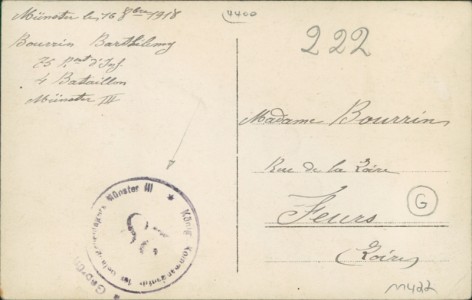 Münster le 16 8bre 1918
Bourrin Barthélemy
75 Regt d'Inf.
4 Bataillon
Münster III
4400
222
Madame Bourrin
Rue de la Loire
Feurs
(Loire)
G
Münster III
Geprüft
11422